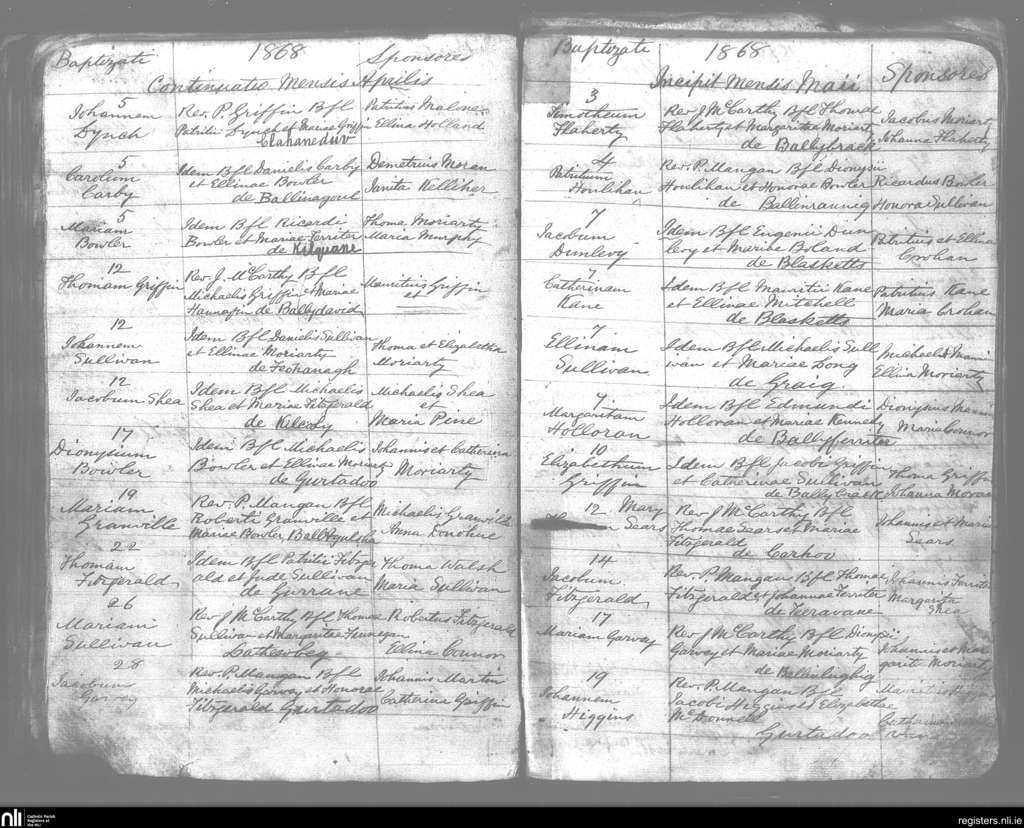 Baptizati 1868 Sponsores
Continuatio Mensis Aprilis
5
Johannem Rev. P. Griffin Bfl Patritius Malone
Lynch Patritii Lynch et Mariae Griffin Ellina Holland
Clahaneduv
5
Carolum Idem Bfl Danielis Carby Demetrius Moran
Carby et Ellinae Bowler Janita Kelliher
de Ballinagoul
5
Mariam Idem Bfl Ricardi Thoma Moriarty
Bowler Bowler et Mariae Ferriter Maria Murphy
de Kilquane
12
Thomam Griffin Rev. J. McCarthy Bfl Mauritius Griffin
Michaelis Griffin et Mariae et
Hannafin de Ballydavid
12
Johannem Idem Bfl Danielis Sullivan Thoma et Elizabetha
Sullivan et Ellinae Moriarty Moriarty
de Feohanagh
12
Jacobum Shea Idem Bfl Michaelis Michaelis Shea
Shea et Mariae Fitzgerald et
de Kilcooly Maria Pine
17
Dionysium Idem Bfl Michaelis Johannis et Catherina
Bowler Bowler et Ellinae Moriarty Moriarty
de Gurtadoo
19
Mariam Rev. P. Mangan Bfl Michaelis Granville
Granville Roberti Granville et Anna Donohue
Mariae Bowler,
22
Thomam Idem Bfl Patritii Fitzger Thoma Walsh
Fitzgerald ald et Jude Sullivan Maria Sullivan
de Gurrane
26
Mariam Rev J McCarthy Bfl Thomae Robertus Fitzgerald
Sullivan Sullivan et Margaritae Finnegan Ellina Connor
Lateevbeg
28
Jacobum Rev. P. Mangan Bfl Johannis Martin
Garvey Michaelis Garvey et Honorae Catherina Griffin
Fitzgerald Gurtadoo
Baptizati 1868
Incipit Mensis Maii Sponsores
3
Timotheum Rev J McCarthy Bfl Thomae Jacobus Moriarty
Flaherty Flaherty et Margaritae Moriarty Johanna Flaherty
de Ballybrack
4
Patritium Rev. P. Mangan Bfl Dionysii
Houlihan Houlihan et Honorae Bowler Ricardus Bowler
de Ballinrannig Honora Sullivan
7
Jacobum Idem Bfl Eugenii Dun Patritius et Ellina
Dunlevy levy et Mariae Boland Crohan
de Blasketts
7
Catherinam Idem Bfl Mauritii Kane Patritius Kane
Kane et Ellinae Mitchell Maria Crohan
de Blasketts
7
Ellinam Idem Bfl Michaelis Sull
Sullivan ivan et Mariae Long Ellina Moriarty
de Graig
7
Margaritam Idem Bfl Edmundi Dionysius
Holloran Holloran et Mariae Kennedy Maria Connor
de Ballyferriter
10
Elizabethum Idem Bfl Jacobi Griffin Thoma Griffin
Griffin et Catherinae Sullivan Johanna Moran
de Ballybrack
12 Mary Rev J McCarthy Bfl
Sears Thomae Sears et Mariae Johannis et Maria
Fitzgerald Sears
de Carhoo
14
Jacobum Rev. P. Mangan Bfl Thomae Johannis Ferriter
Fitzgerald Fitzgerald et Johannae Ferriter Margarita
de Teeravane Shea
17
Mariam Garvey Rev J McCarthy Bfl Dionysii Johannis et Mar
Garvey et Mariae Moriarty garita Moriarty
19
Johannem Rev. P. Mangan Bfl
Higgins Jacobi Higgins et Elizabethae
McDonnell
Gurtadoo
nli Catholic Parish
Registers at
the NLI
registers.nli.ie